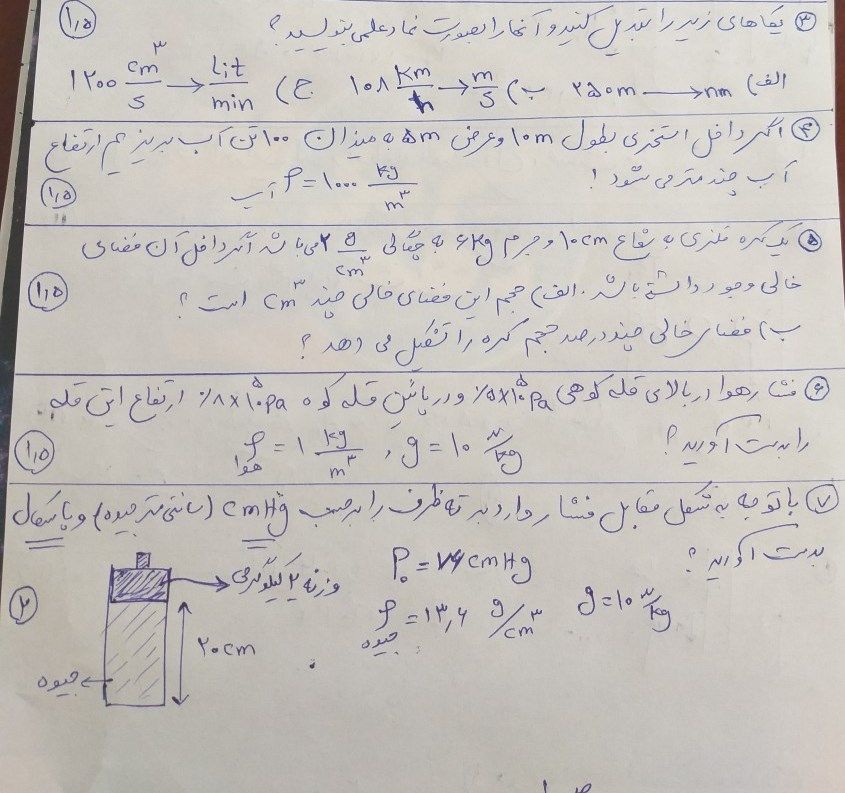 ۳) یکاهای زیر را تبدیل کنید و آنها را بصورت نماد علمی بنویسید؟ (۱٫۵)
الف) ۲۵۰m → nm ب) ۱۰۸ km/h → m/s ج) ۱۲۰۰ cm³/s → Lit/min
۴) اگر داخل استخری بطول ۱۰m و عرض ۵m به میزان ۱۰۰ تن آب بریزیم ارتفاع
آب چند متر می شود! ρ آب = ۱۰۰۰ kg/m³ (۱٫۵)
۵) یک کره فلزی به شعاع ۱۰cm و جرم ۶kg به چگالی ۲ g/cm³ می باشد اگر داخل آن فضای
خالی وجود داشته باشد. الف) حجم این فضای خالی چند cm³ است؟ (۱٫۵)
ب) فضای خالی چند درصد حجم کره را تشکیل می دهد؟
۶) فشار هوا در بالای قله کوهی ۰/۵×۱۰⁵pa و در پائین قله کوه ۰/۸×۱۰⁵pa ارتفاع این قله
را بدست آورید؟ ρ هوا = ۱ kg/m³ , g=۱۰ N/kg (۱٫۵)
۷) با توجه به شکل مقابل فشار وارد بر ته ظرف را برحسب cmHg (سانتی متر جیوه) و پاسکال
بدست آورید؟ P₀ = ۷۶ cmHg (۲)
ρ جیوه = ۱۳٫۶ g/cm³ g=۱۰ N/kg
وزنه ۲ کیلوگرمی
۲۰cm
جیوه